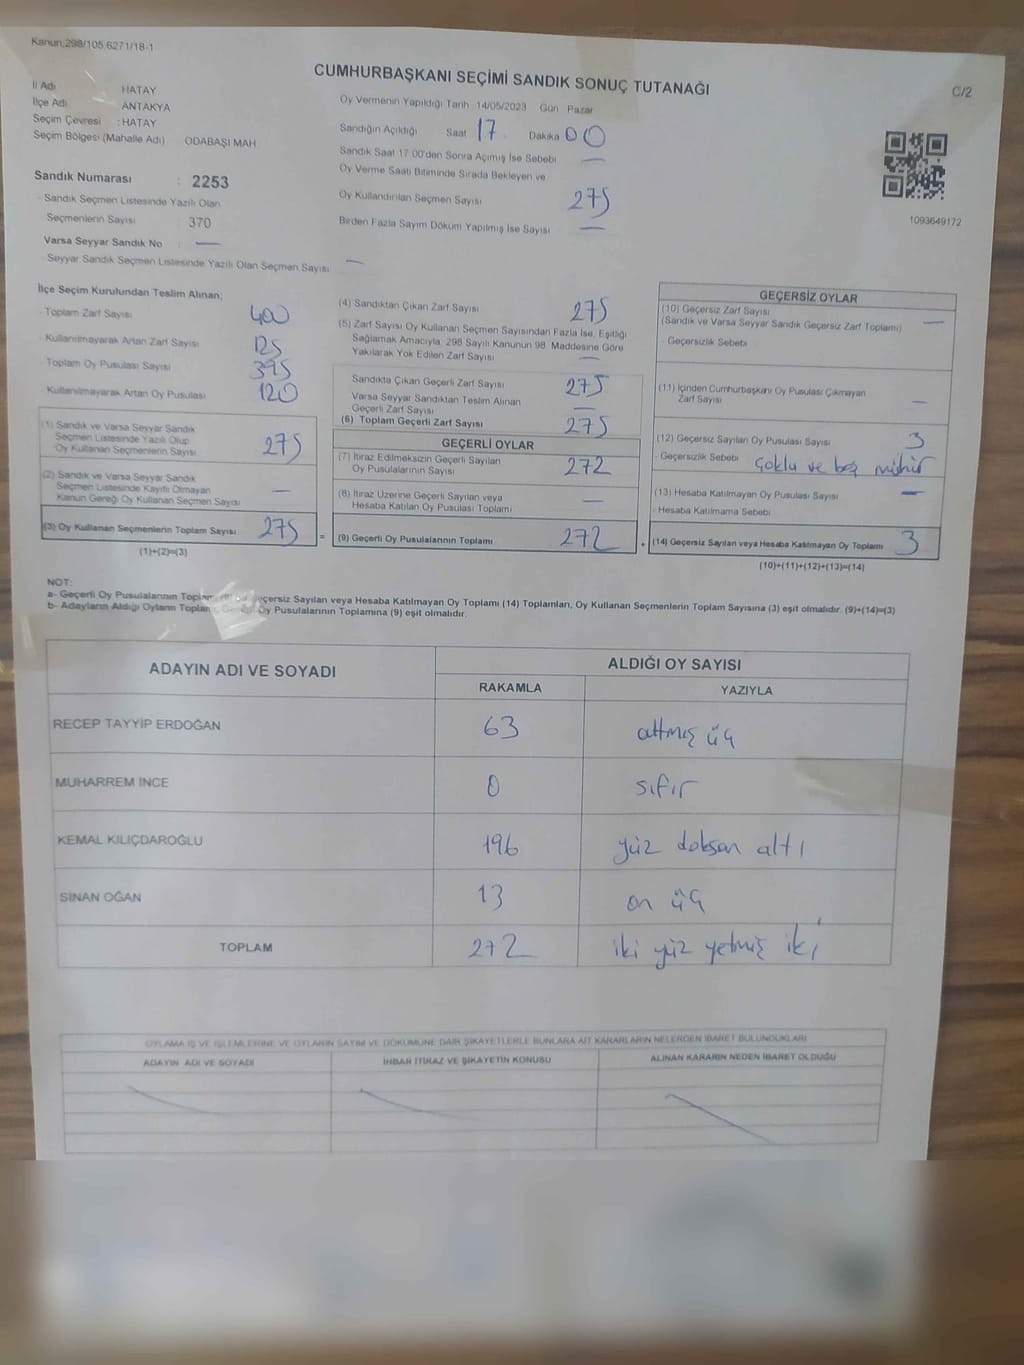 Kanun,298/105,6271/18-1
CUMHURBAŞKANI SEÇİMİ SANDIK SONUÇ TUTANAĞI
C/2
İl Adı HATAY
İlçe Adı ANTAKYA
Seçim Çevresi : HATAY
Seçim Bölgesi (Mahalle Adı) ODABAŞI MAH
Sandık Numarası : 2253
Sandık Seçmen Listesinde Yazılı Olan
Seçmenlerin Sayısı : 370
Varsa Seyyar Sandık No : —
Seyyar Sandık Seçmen Listesinde Yazılı Olan Seçmen Sayısı —
Oy Vermenin Yapıldığı Tarih 14/05/2023 Gün Pazar
Sandığın Açıldığı Saat 17 Dakika 00
Sandık Saat 17:00'den Sonra Açımış İse Sebebi —
Oy Verme Saati Bitiminde Sırada Bekleyen ve
Oy Kullandırılan Seçmen Sayısı 275
Birden Fazla Sayım Döküm Yapılmış İse Sayısı —
1093649172
İlçe Seçim Kurulundan Teslim Alınan;
Toplam Zarf Sayısı 400
Kullanılmayarak Artan Zarf Sayısı 125
Toplam Oy Pusulası Sayısı 395
Kullanılmayarak Artan Oy Pusulası 120
(1) Sandık ve Varsa Seyyar Sandık
Seçmen Listesinde Yazılı Olup
Oy Kullanan Seçmenlerin Sayısı 275
(2) Sandık ve Varsa Seyyar Sandık
Seçmen Listesinde Kayıtlı Olmayan
Kanun Gereği Oy Kullanan Seçmen Sayısı —
(3) Oy Kullanan Seçmenlerin Toplam Sayısı 275 =
(1)+(2)=(3)
(4) Sandıktan Çıkan Zarf Sayısı 275
(5) Zarf Sayısı Oy Kullanan Seçmen Sayısından Fazla İse, Eşitliği
Sağlamak Amacıyla, 298 Sayılı Kanunun 98. Maddesine Göre
Yakılarak Yok Edilen Zarf Sayısı —
Sandıkta Çıkan Geçerli Zarf Sayısı 275
Varsa Seyyar Sandıktan Teslim Alınan
Geçerli Zarf Sayısı —
(6) Toplam Geçerli Zarf Sayısı 275
GEÇERLİ OYLAR
(7) İtiraz Edilmeksizin Geçerli Sayılan
Oy Pusulalarının Sayısı 272
(8) İtiraz Üzerine Geçerli Sayılan veya
Hesaba Katılan Oy Pusulası Toplamı —
(9) Geçerli Oy Pusulalarının Toplamı 272 +
GEÇERSİZ OYLAR
(10) Geçersiz Zarf Sayısı
(Sandık ve Varsa Seyyar Sandık Geçersiz Zarf Toplamı) —
Geçersizlik Sebebi
(11) İçinden Cumhurbaşkanı Oy Pusulası Çıkmayan
Zarf Sayısı —
(12) Geçersiz Sayılan Oy Pusulası Sayısı 3
Geçersizlik Sebebi Çoklu ve boş mühür
(13) Hesaba Katılmayan Oy Pusulası Sayısı —
Hesaba Katılmama Sebebi
(14) Geçersiz Sayılan veya Hesaba Katılmayan Oy Toplamı 3
(10)+(11)+(12)+(13)=(14)
NOT:
a- Geçerli Oy Pusulalarının Geçersiz Sayılan veya Hesaba Katılmayan Oy Toplamı (14) Toplamları, Oy Kullanan Seçmenlerin Toplam Sayısına (3) eşit olmalıdır. (9)+(14)=(3)
b- Adayların Aldığı Oyların Oy Pusulalarının Toplamına (9) eşit olmalıdır.
ADAYIN ADI VE SOYADI ALDIĞI OY SAYISI
RAKAMLA YAZIYLA
RECEP TAYYİP ERDOĞAN 63 altmış üç
MUHARREM İNCE 0 sıfır
KEMAL KILIÇDAROĞLU 196 yüz doksan altı
SİNAN OĞAN 13 on üç
TOPLAM 272 iki yüz yetmiş iki
OYLAMA İŞ VE İŞLEMLERİNE VE OYLARIN SAYIM VE DÖKÜMÜNE DAİR ŞİKAYETLERLE BUNLARA AİT KARARLARIN NELERDEN İBARET BULUNDUKLARI
ADAYIN ADI VE SOYADI İHBAR İTİRAZ VE ŞİKAYETİN KONUSU ALINAN KARARIN NEDEN İBARET OLDUĞU